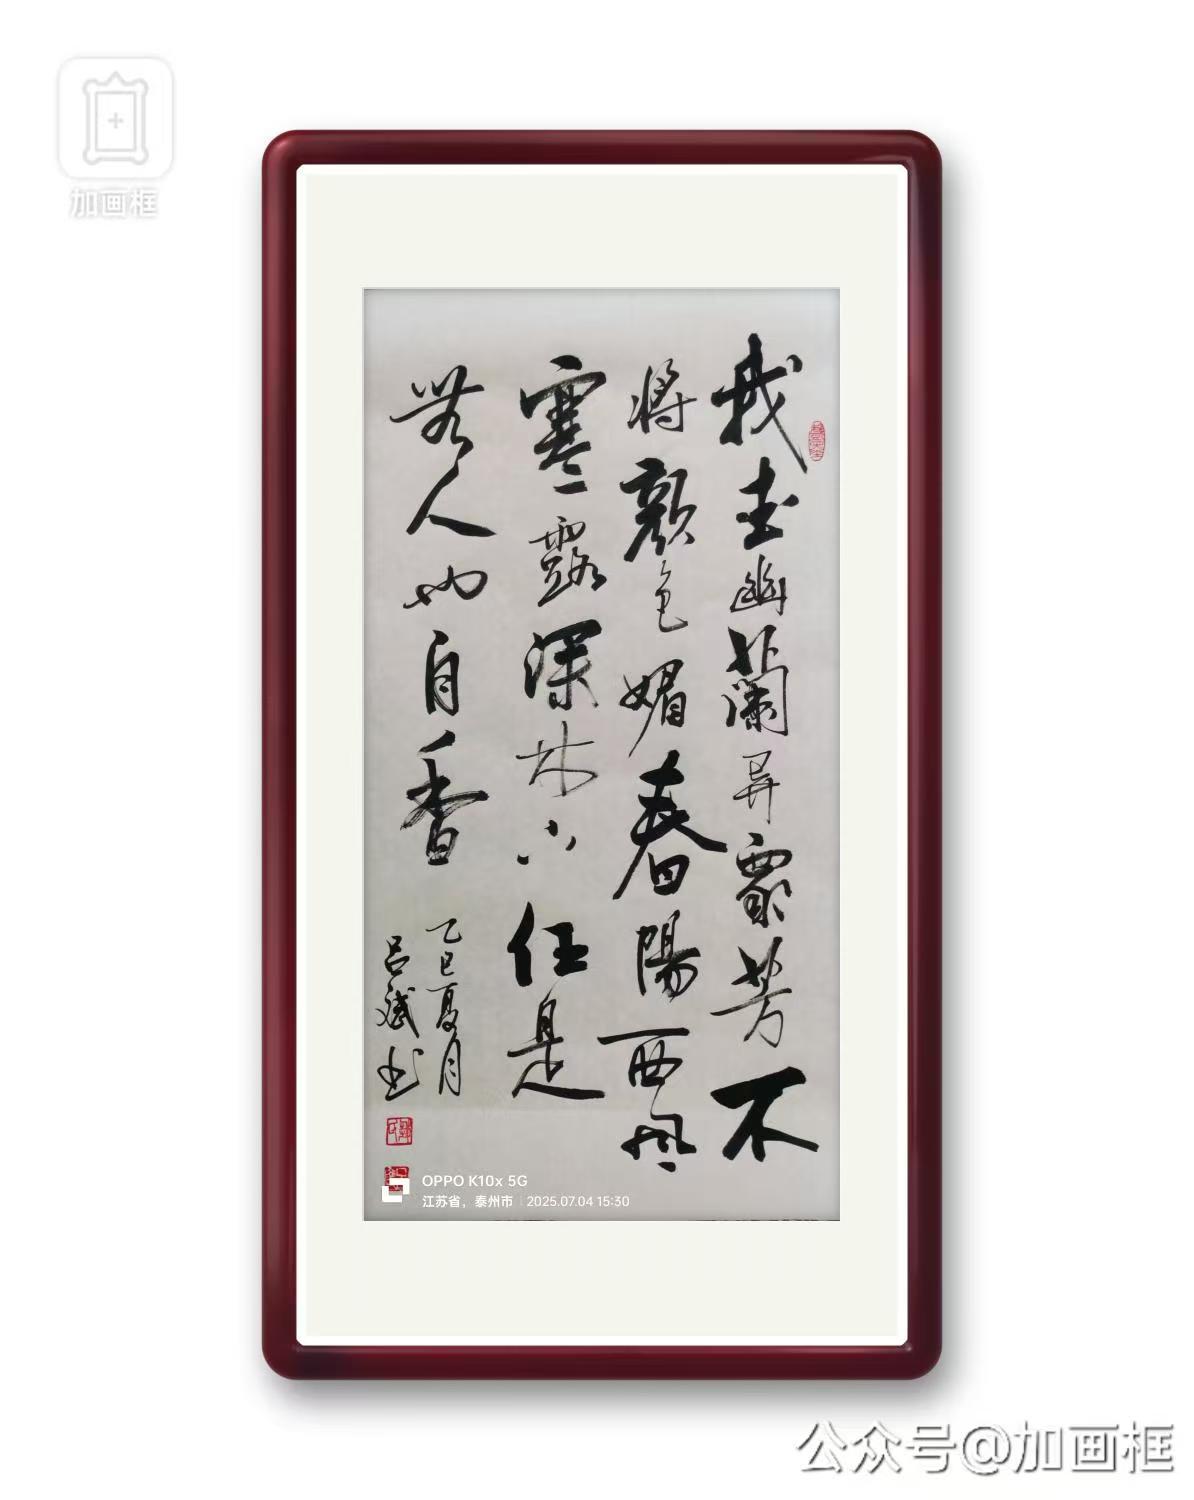 加画框
我爱幽蘭异眾芳不
將顏色媚春陽西風
寒露深林下任是
無人也自香
乙巳夏月
吕斌书
OPPO K10x 5G
江苏省，泰州市 | 2025.07.04 15:30
公众号@加画框